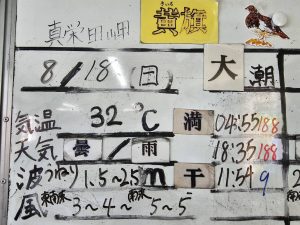 きいろ
真栄田岬 黄旗
8/18(日) 大潮
気温 32℃ 満 04:55 188
天気 曇/雨 18:35 188
波 うねり 1.5~2.5m 干 11:54 9
風 東南東 3~4~ 南東 5~5